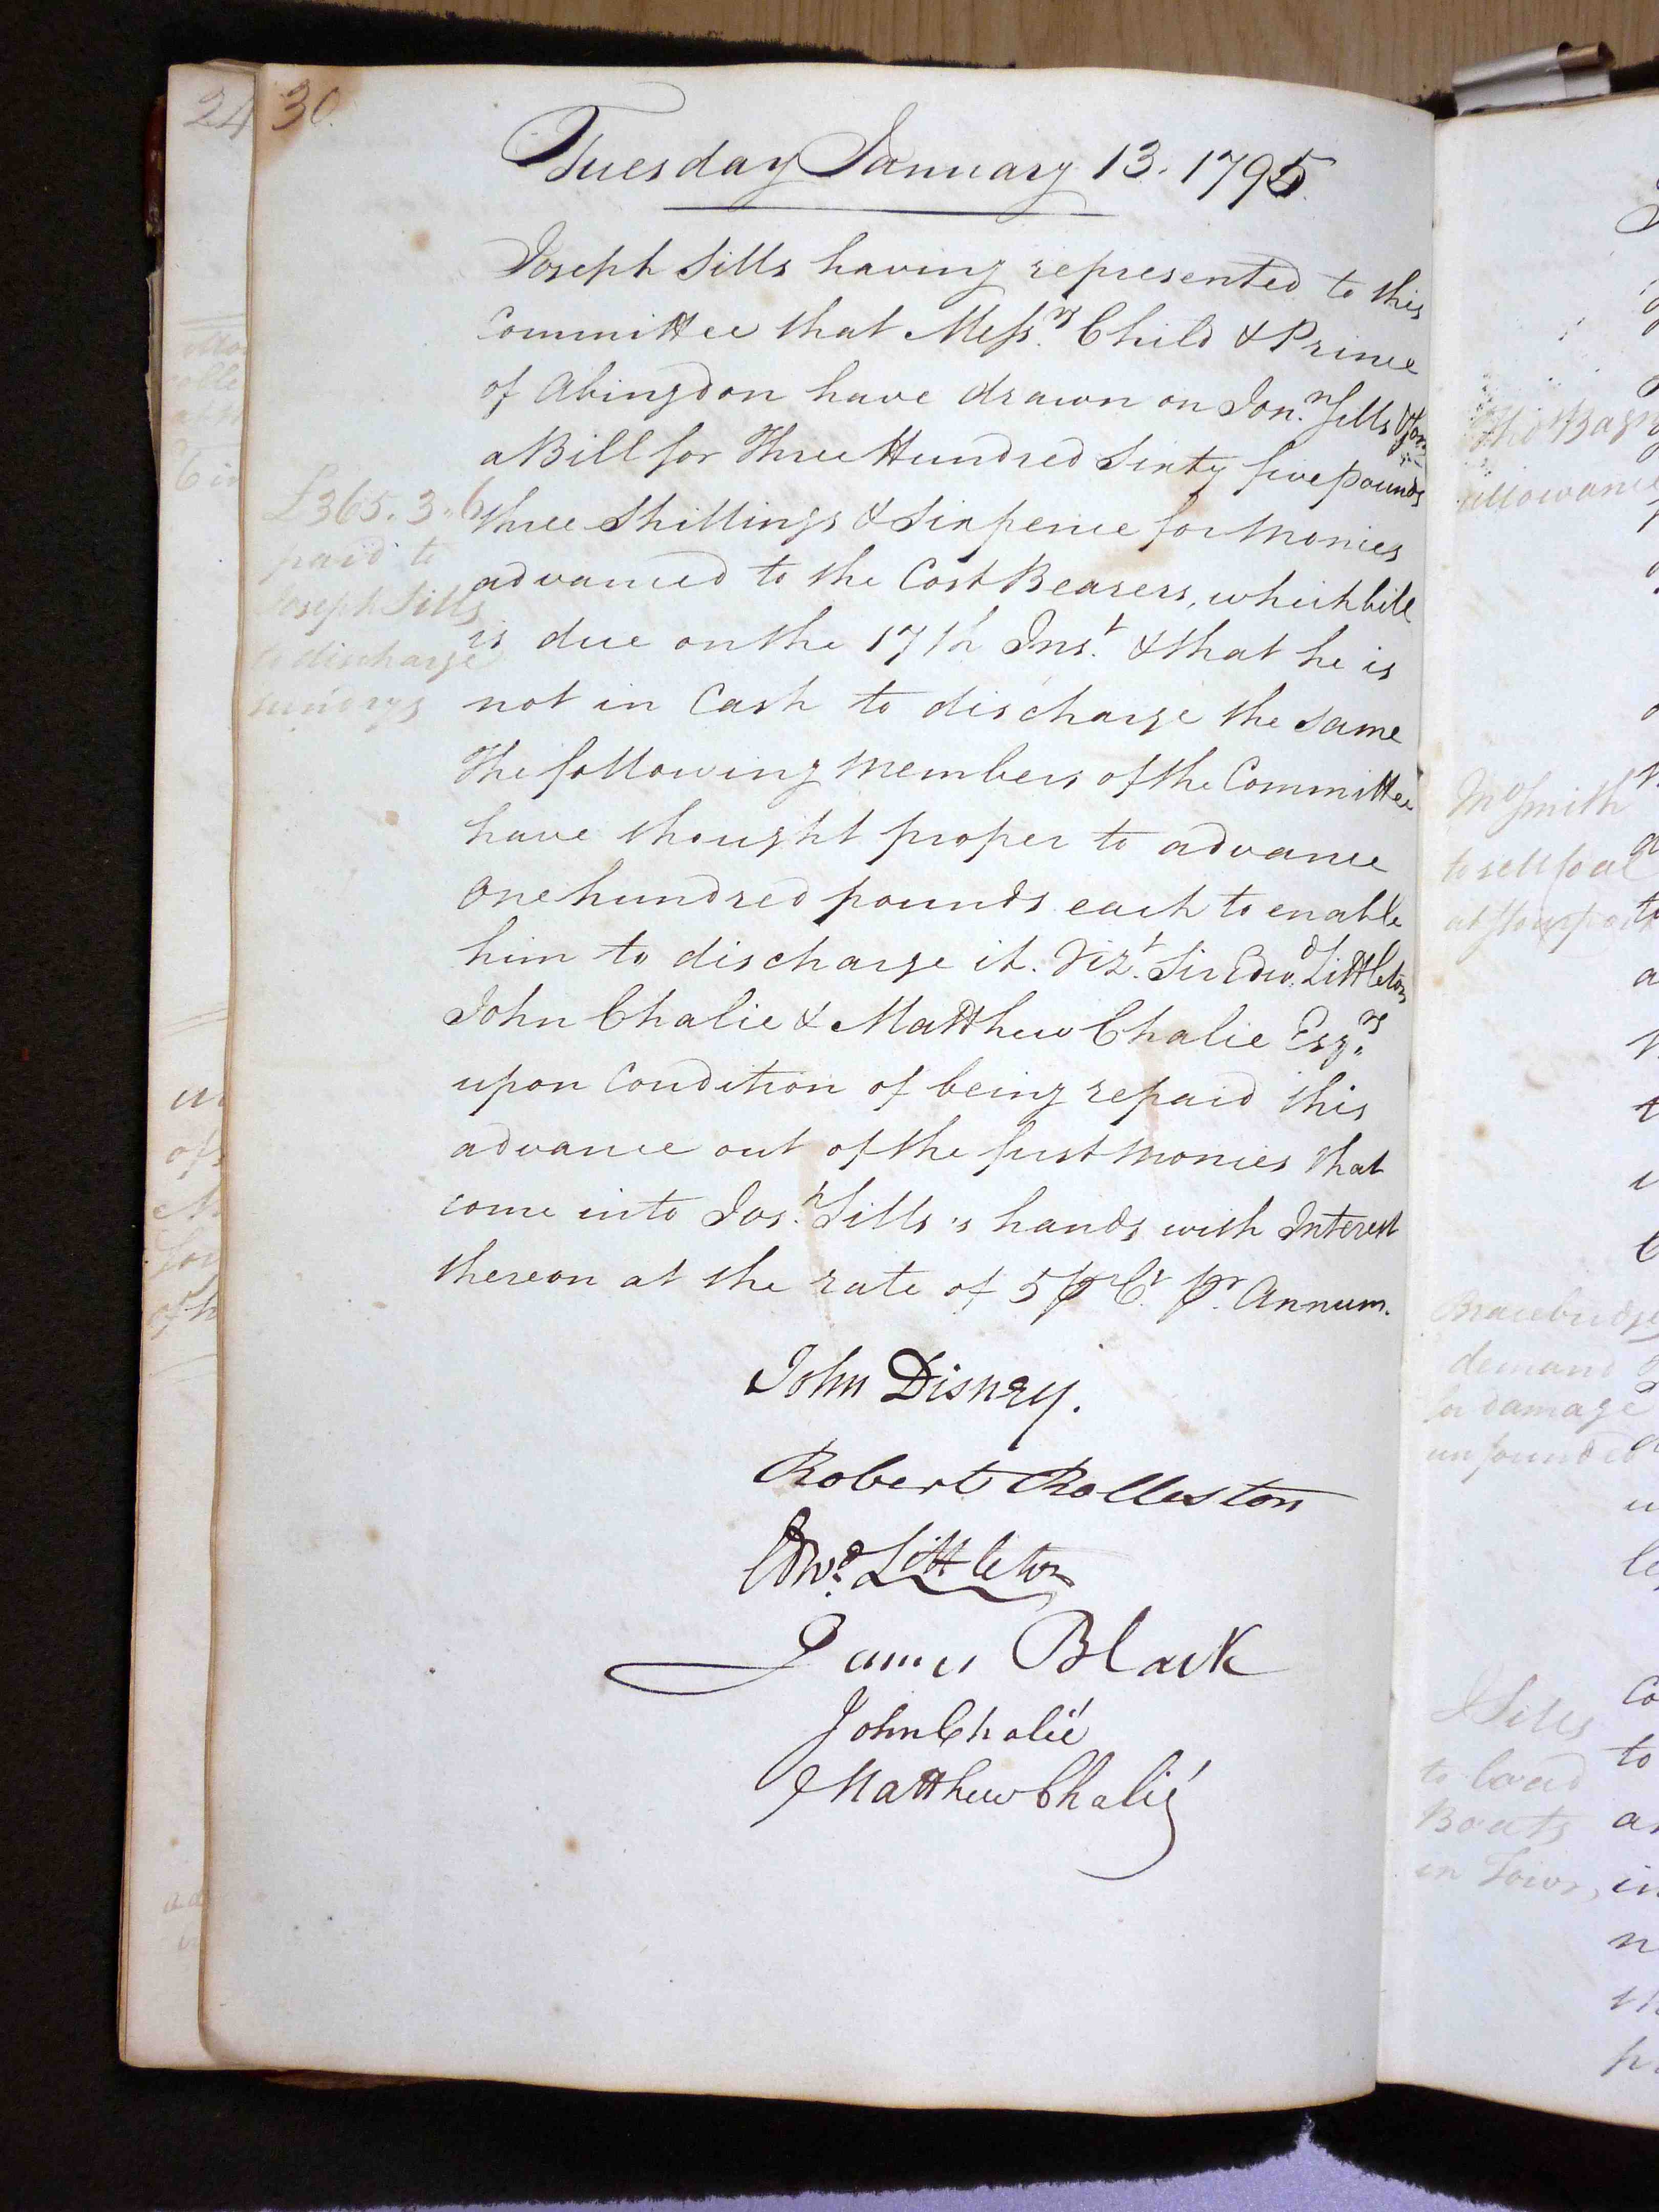 24
30.
Tuesday January 13. 1795.
Joseph Sills having represented to this
Committee that Messrs. Child & Prince
of Abingdon have drawn on Jon.n Sills & Son
a Bill for Three Hundred Sixty five pounds
three Shillings & Sixpence for Monies
advanced to the Cost Bearers, which bill
is due on the 17th Inst. & that he is
not in Cash to discharge the same
The following Members of the Committee
have thought proper to advance
One hundred pounds each to enable
him to discharge it. Vizt. Sir Edwd. Littleton
John Chalie & Matthew Chalie Esqrs.
upon Condition of being repaid this
advance out of the first Monies that
come into Jos.h Sills's hands with Interest
thereon at the rate of 5 pr Ct. pr. Annum.
£365.3.6
paid to
Joseph Sills
to discharge
sundrys
John Disney.
Robert Rolleston
Edwd. Littleton
James Black
John Chalié
Matthew Chalié
allowance
Mr Smith
to sell Coal
at Stourport
Bracebridge
demand
for damage
unfounded
J Sills
to load
Boats
in Town,